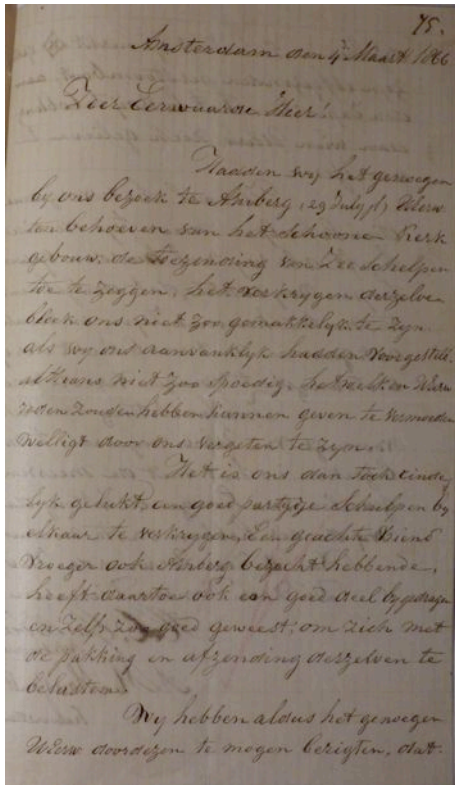 75.
Amsterdam den 4 Maart 1866
Zeer Eerwaarde Heer!
Hadden wij het genoegen
by ons bezoek te (29 July jl) UEerw
ten behoeven van het schoone Kerk
gebouw, de toezending van Zee schelpen
toe te zeggen, het verkrygen derzelve
bleek ons niet zoo gemakkelyk te zyn
als wy ons aanvanklyk hadden voorgesteld.
althans niet zoo spoedig, hetwelk en UEerw
reden zouden hebben kunnen geven te vermoeden
welligt door ons vergeten te zyn.
Het is ons dan toch einde
lyk gelukt een goed partytje Schulpen by
elkaar te verkrygen, Een geachte Vriend
vroeger ook bezocht hebbende,
heeft daartoe ook een goed deel bygedragen
en zelfs zoo goed geweest, om zich met
de pakking en afzending derzelven te
belasten.
Wy hebben aldus het genoegen
UEerw door dezen te mogen berigten, dat